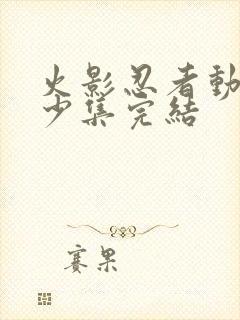 火影忍者動
少集完結
賽果